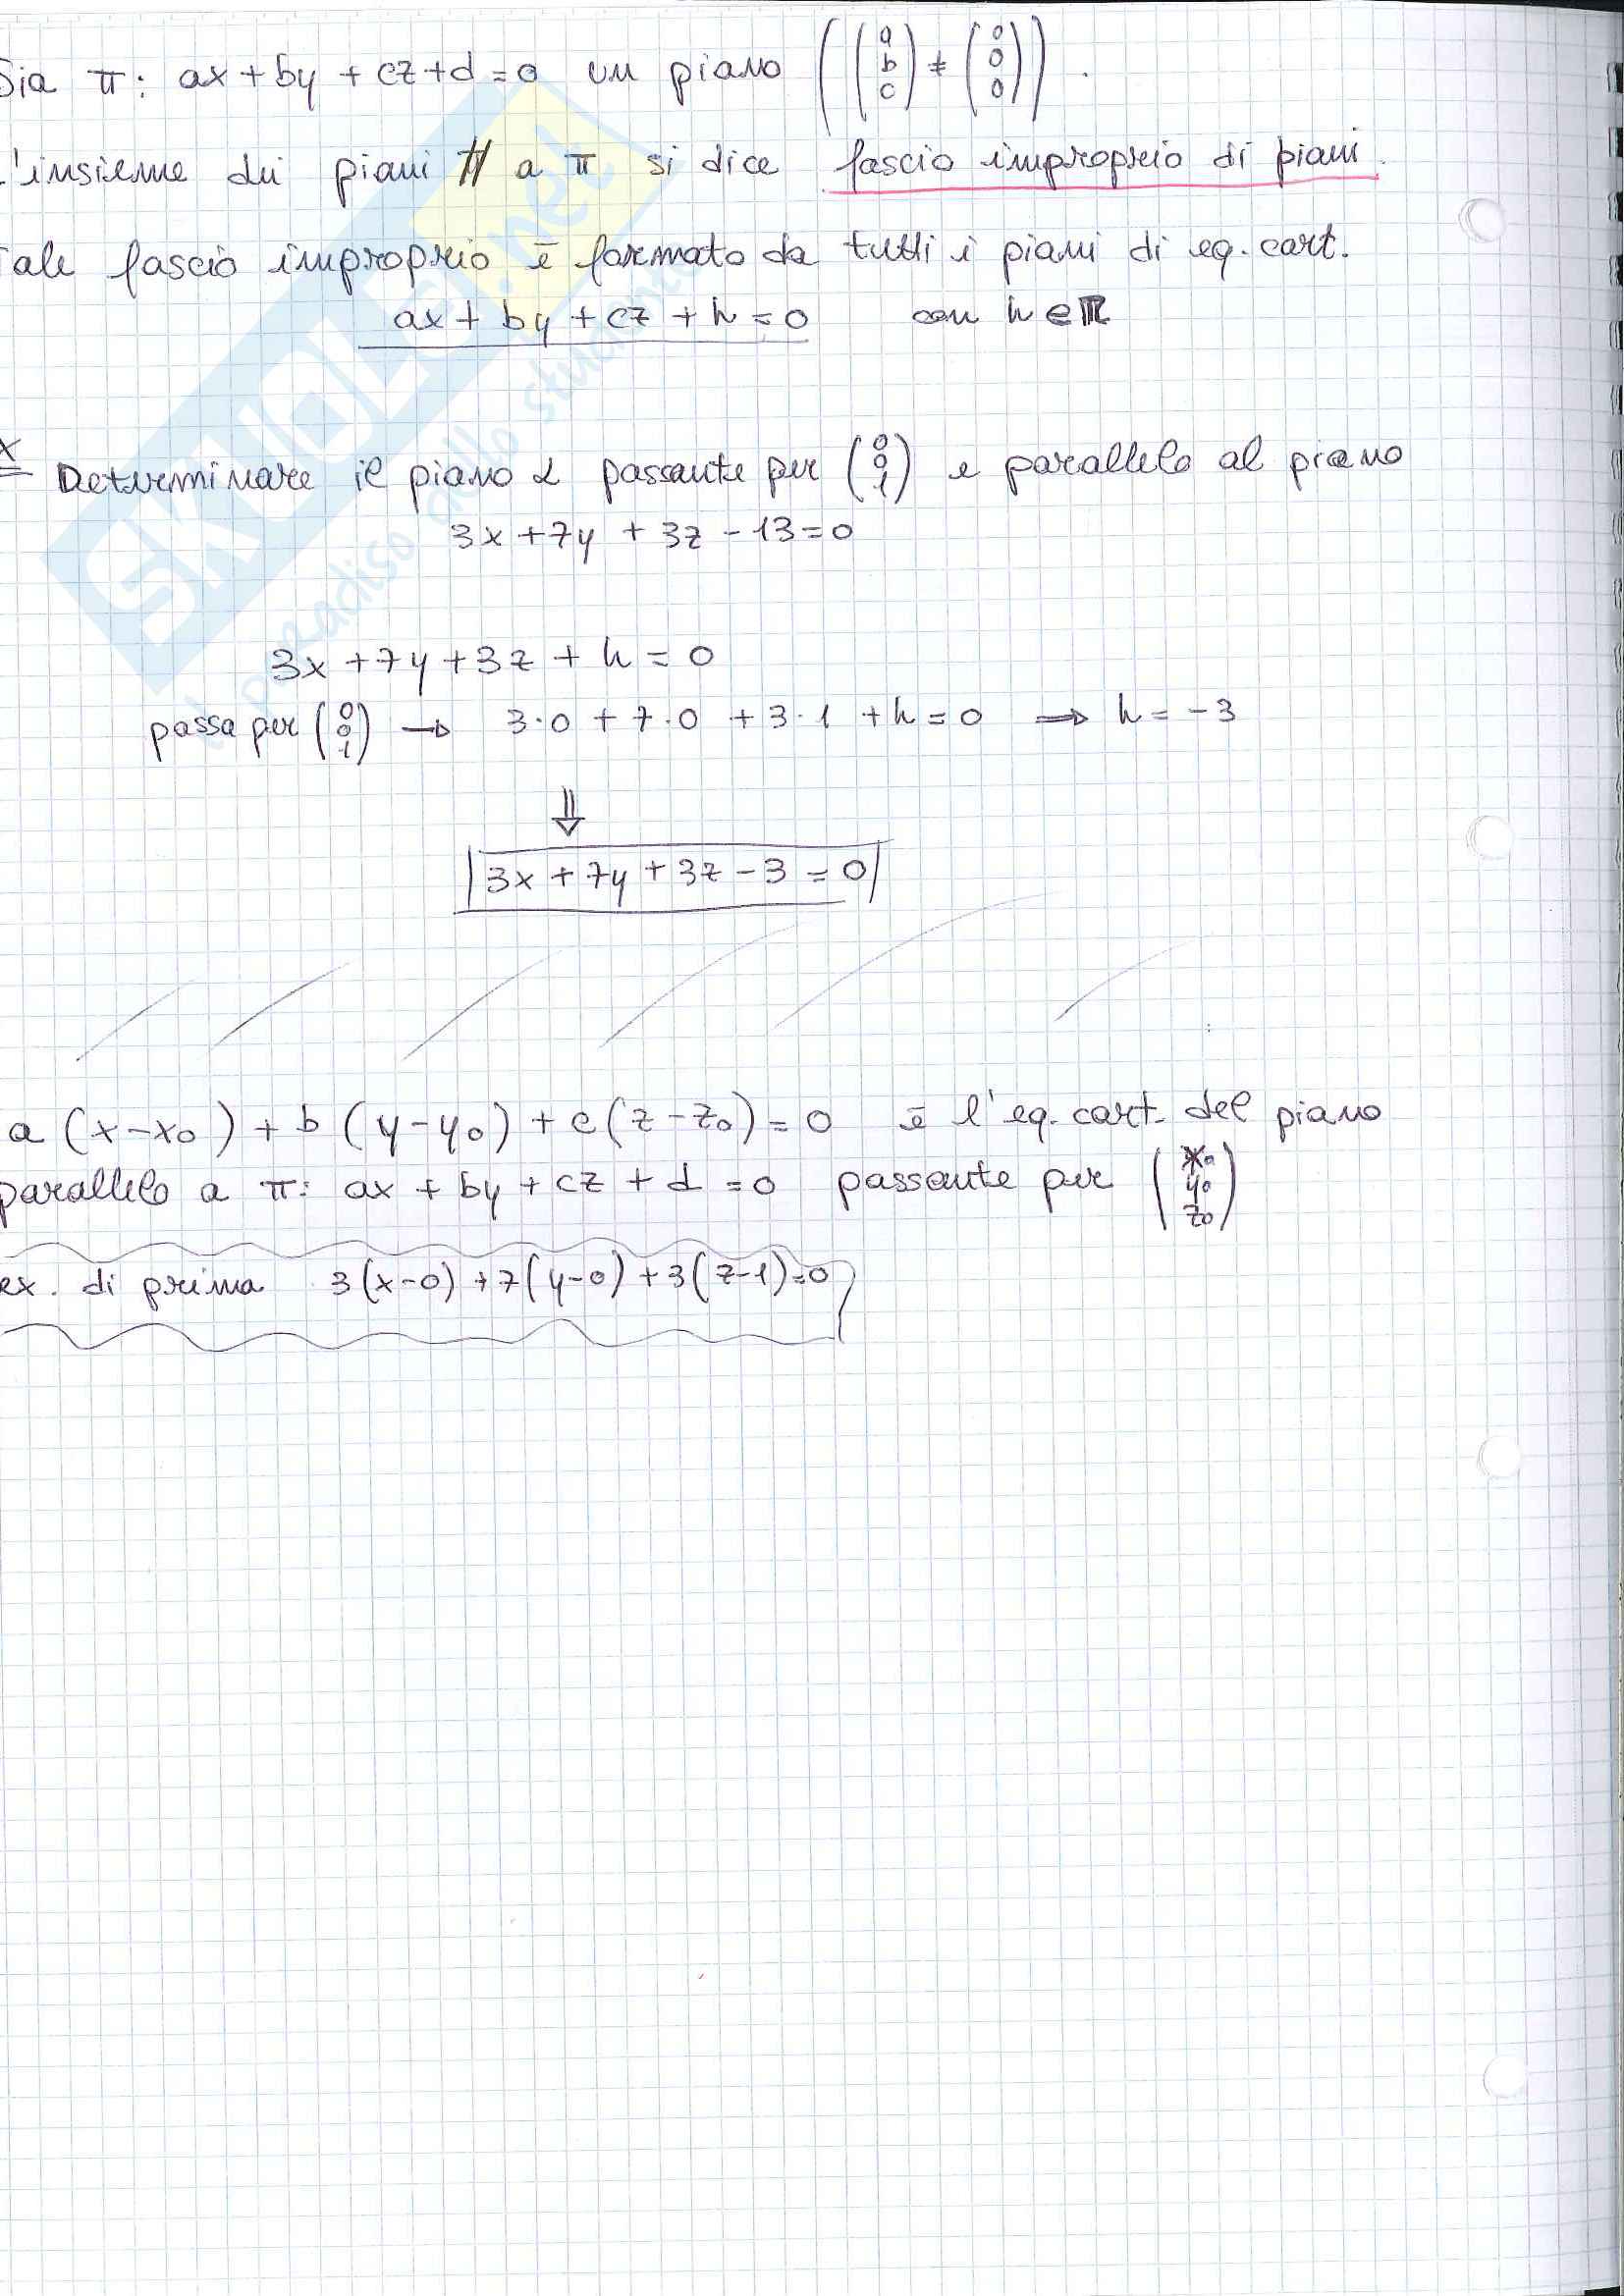 Sia π: ax+by+cz+d=0 un piano ((a b c) ≠ (0 0 0)).
L'insieme dei piani // a π si dice fascio improprio di piani.
Tale fascio improprio è formato da tutti i piani di eq. cart.
ax+by+cz+h=0 con h∈ℝ
Determinare il piano α passante per (0 0 1) e parallelo al piano
3x+7y+3z-13=0
3x+7y+3z+h=0
passa per (0 0 1) → 3·0+7·0+3·1+h=0 ⇒ h=-3
⇓
3x+7y+3z-3=0
a(x-x₀)+b(y-y₀)+c(z-z₀)=0 è l'eq. cart. del piano
parallelo a π: ax+by+cz+d=0 passante per (x₀ y₀ z₀)
ex. di prima 3(x-0)+7(y-0)+3(z-1)=0
SKUOLA.net
il paradiso dello studente